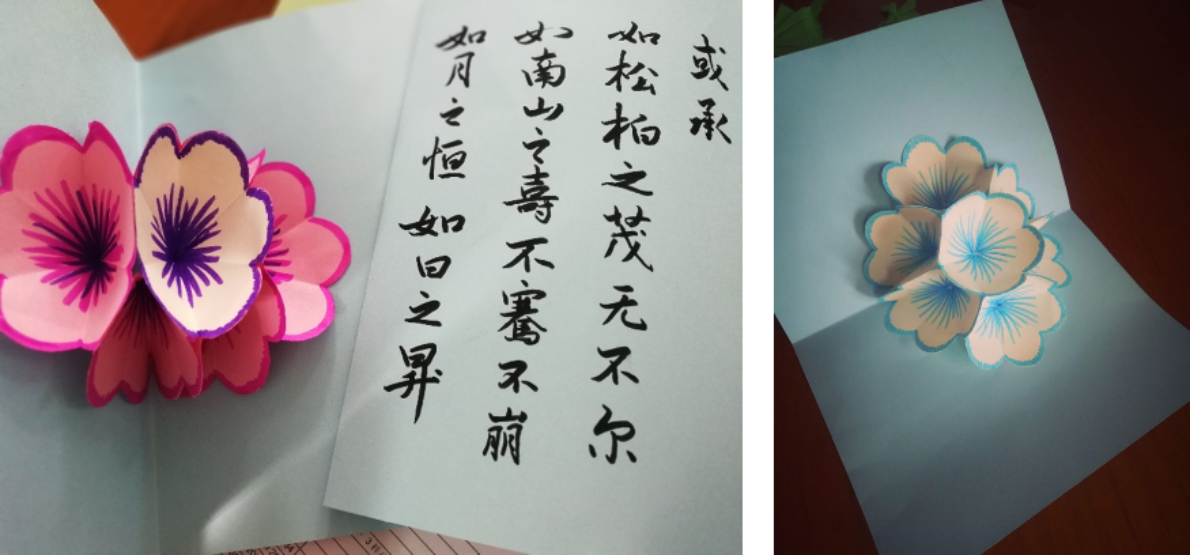 如月之恒 如日之昇
如南山之壽不騫不崩
如松柏之茂无不尔
或承